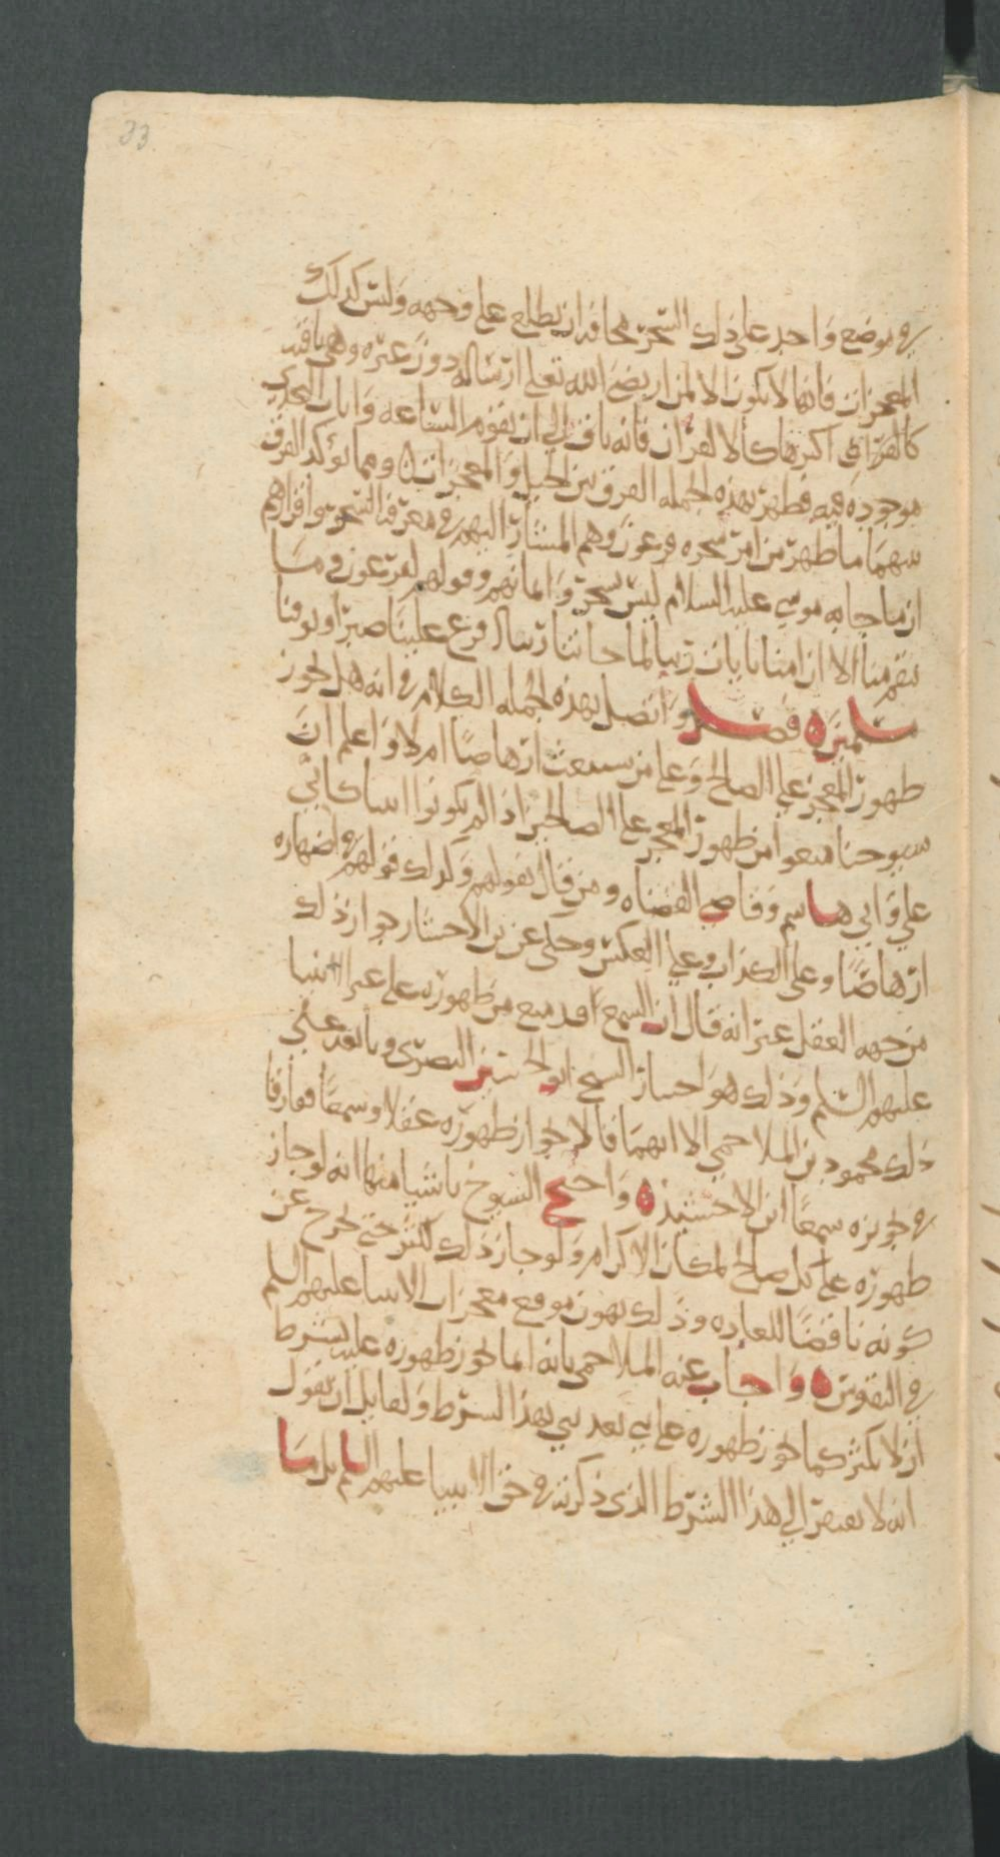 33
في موضع واحد على ذلك السحر مخافة ان يطلع على وجهه وليس كذلك
المعجزات فانها لا تكون الا لمن ارتضى الله تعلى ارساله دون غيره وهي باقية
كالقران اكثرها كالا القران فانه باق الى ان تقوم الساعه وايات التحدي
موجوده فيه فظهر بهذه الجمله الفرق بين الحيل والمعجزات ومما يؤكد الفرق
بينهما ما ظهر من امر سحره فرعون وهم المشار اليهم في معرفة السحر واقرارهم
ان ما جا به موسى عليه السلام ليس بسحر وايمانهم وقولهم لفرعون وما
تنقم منا الا ان امنا بايات ربنا لما جاتنا ربنا افرغ علينا صبرا وتوفنا
مسلمين ه فصل واتصل بهذه الجمله الكلام في انه هل يجوز
ظهور المعجز على الصالح وعلى من سيبعث ارهاصا ام لا واعلم ان
شيوخنا منعوا من ظهور المعجز على الصالحين اذا لم يكونوا انبيا كابي
علي وابي هاشم وقاضي القضاه ومن قال بقولهم وكذلك قولهم في اظهاره
ارهاصا وعلى الكذاب وعلى العكس وحكى عن بن الاخشاد جواز ذلك
من جهه العقل غير انه قال ان السمع قد منع من ظهوره على غير الانبيا
عليهم السلم وذلك هو اختيار الشيخ ابو الحسين البصري وتابعه على
ذلك محمود بن الملاحمي الا انهما قالا بجواز ظهوره عقلا وسمعا ففارقا
في تجويزه سمعا ابن الاخشيذ ه واحتج الشيوخ باشيا منها انه لو جاز
ظهوره على كل صالح لمكان الاكرام ولو جاز ذلك لكثر حتى يخرج عن
كونه ناقضا للعاده وذلك يهون موقع معجزات الانبيا عليهم السلم
في النفوس ه واجاب عنه الملاحمي بانه انما يجوز ظهوره عليه بشرط
ان لا يكثر كما يجوز ظهوره على نبي بعد نبي بهذا الشرط ولقايل ان يقول
انه لا يفتقر الى هذا الشرط الذي ذكرته في حق الانبيا عليهم السلم بل متا